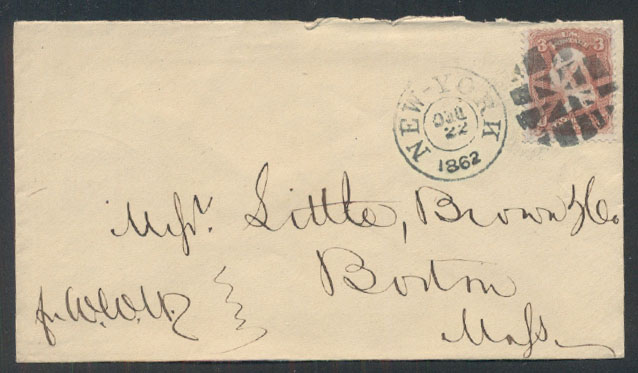 3 3
NEW-YORK
DEC
22
1862
Messr. Little, Brown & Co.
Boston
Mass.